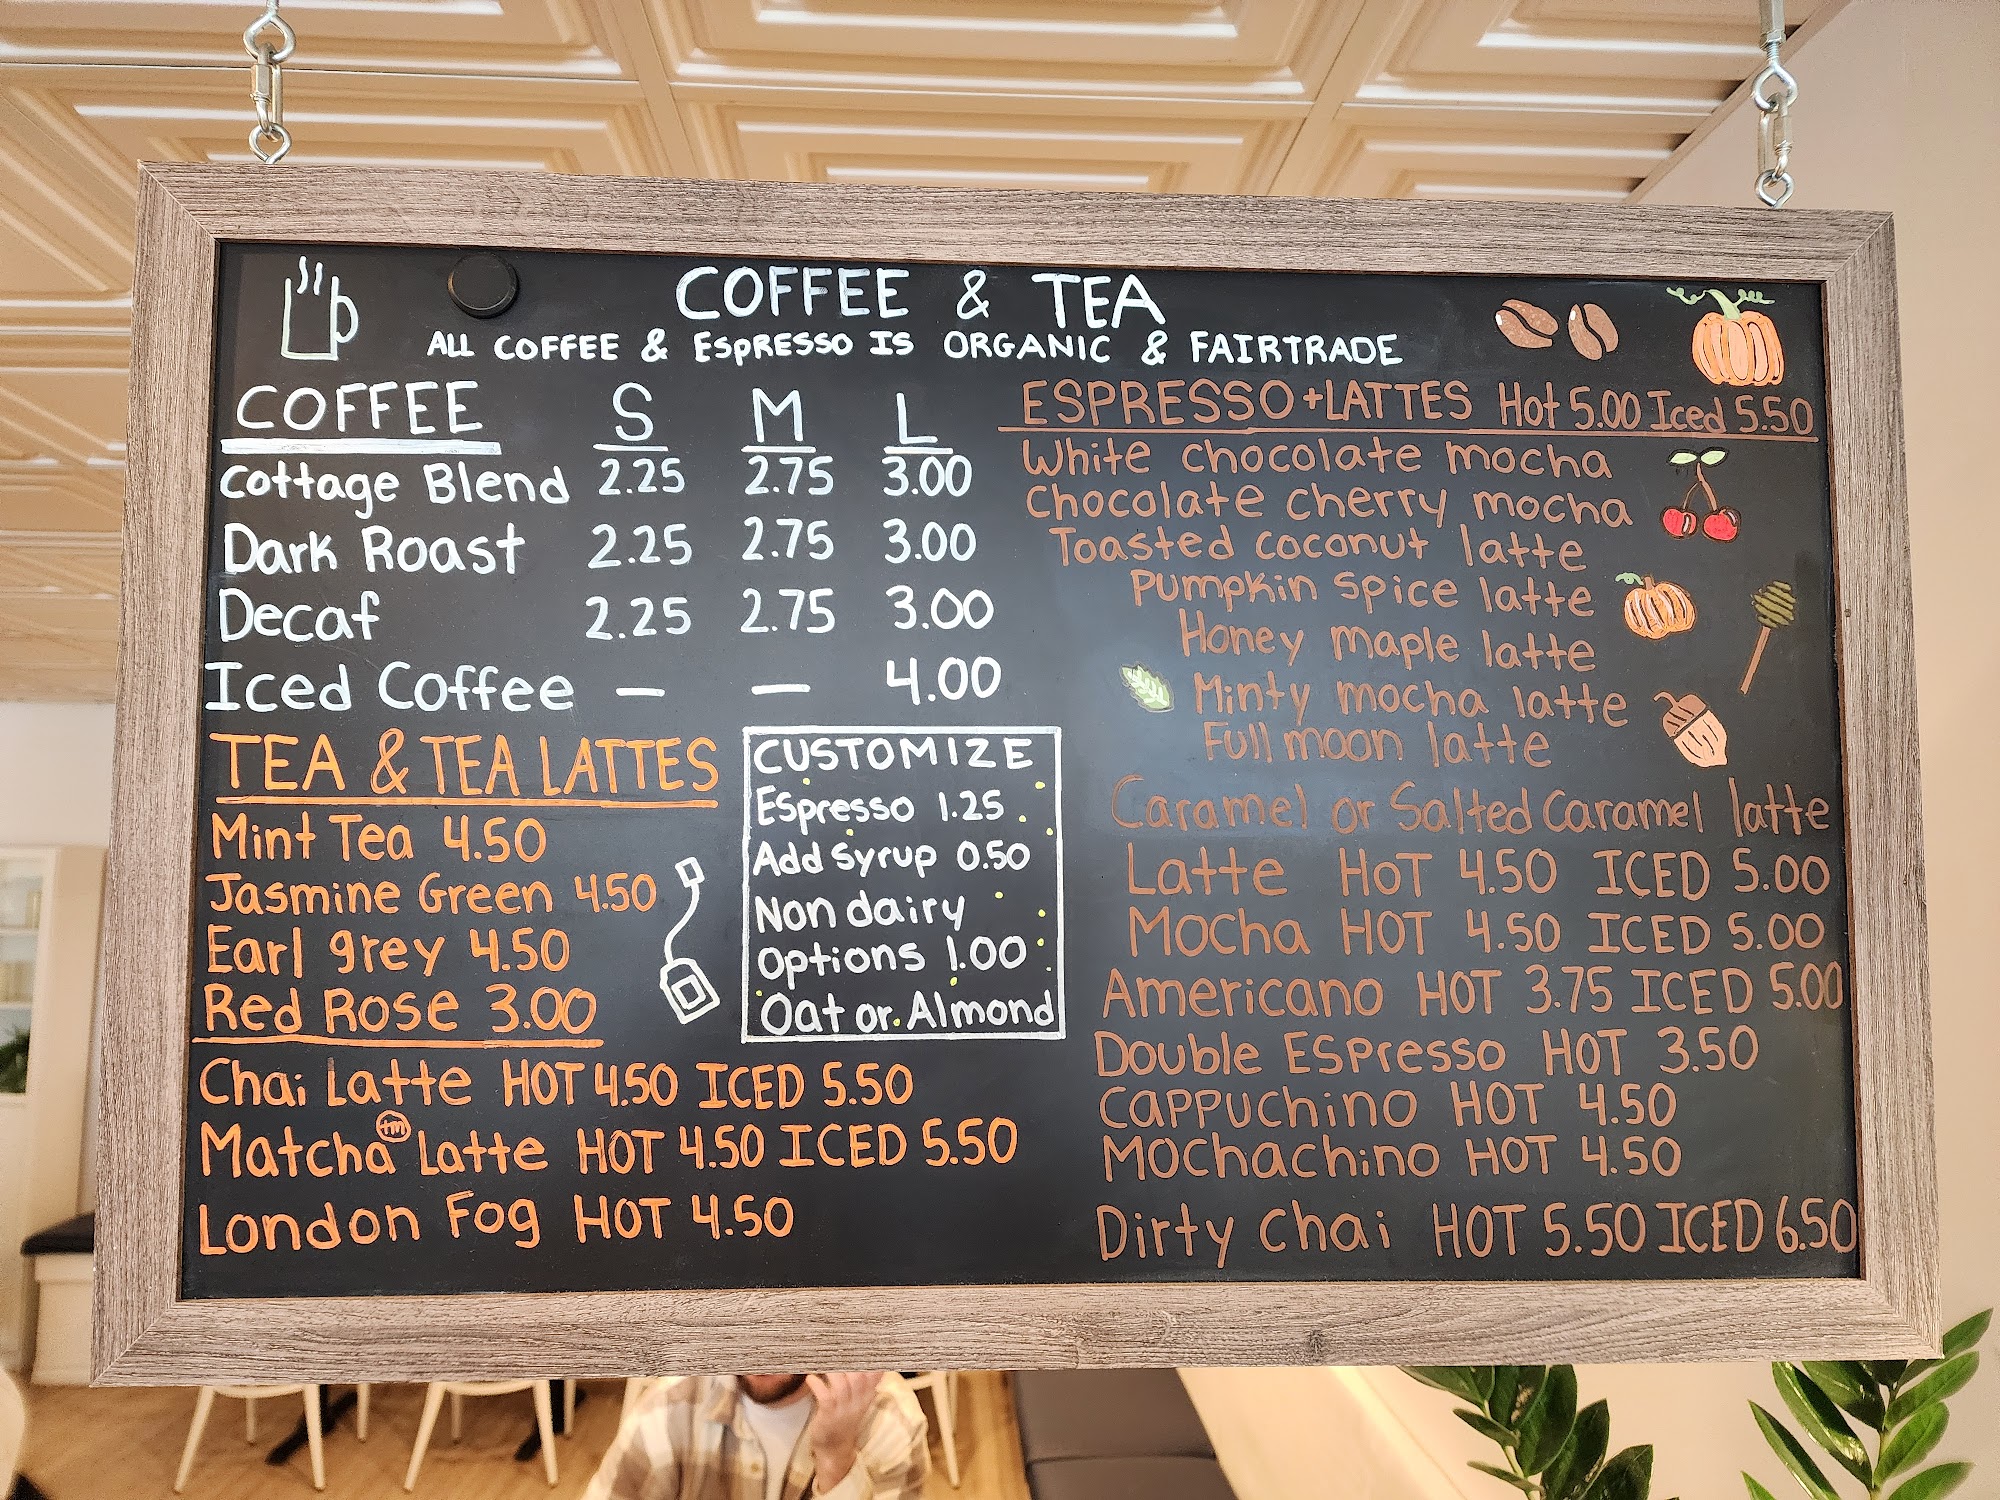 COFFEE & TEA
ALL COFFEE & ESPRESSO IS ORGANIC & FAIRTRADE
COFFEE S M L
Cottage Blend 2.25 2.75 3.00
Dark Roast 2.25 2.75 3.00
Decaf 2.25 2.75 3.00
Iced Coffee — — 4.00
TEA & TEA LATTES
Mint Tea 4.50
Jasmine Green 4.50
Earl grey 4.50
Red Rose 3.00
Chai Latte HOT 4.50 ICED 5.50
Matcha Latte HOT 4.50 ICED 5.50
London Fog HOT 4.50
CUSTOMIZE
Espresso 1.25
Add Syrup 0.50
Non dairy
Options 1.00
Oat or Almond
ESPRESSO + LATTES Hot 5.00 Iced 5.50
White chocolate mocha
Chocolate cherry mocha
Toasted coconut latte
Pumpkin spice latte
Honey maple latte
Minty mocha latte
Full moon latte
Caramel or Salted Caramel latte
Latte HOT 4.50 ICED 5.00
Mocha HOT 4.50 ICED 5.00
Americano HOT 3.75 ICED 5.00
Double Espresso HOT 3.50
Cappuchino HOT 4.50
Mochachino HOT 4.50
Dirty Chai HOT 5.50 ICED 6.50